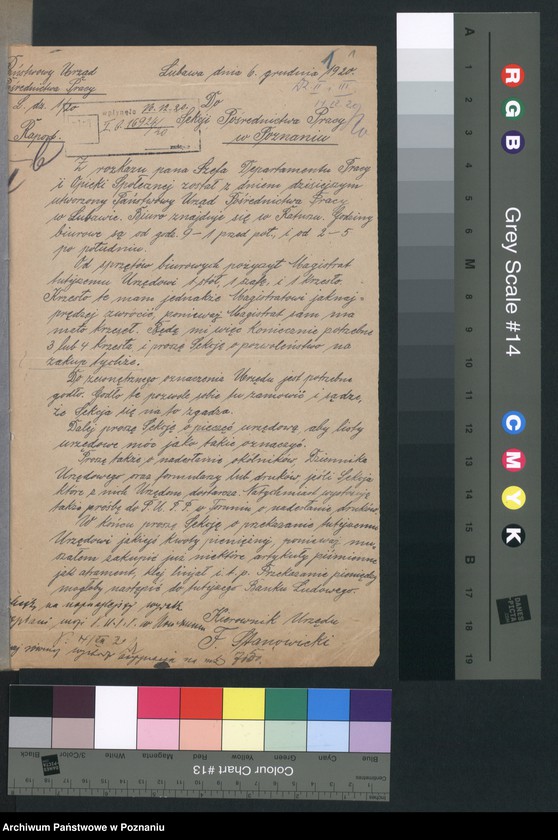 Państwowy Urząd
Pośrednictwa Pracy
Lubawa dnia 6. grudnia 1920r.
L. dz. 1/20
Do
Sekcji Pośrednictwa Pracy
w Poznaniu
Raport.
wpłynęło 22.12.20
Z rozkazu pana Szefa Departamentu Pracy
i Opieki Społecznej został z dniem dzisiejszym
utworzony Państwowy Urząd Pośrednictwa Pracy
w Lubawie. Biuro znajduje się w Ratuszu. Godziny
biurowe są od godz. 9-1 przed poł. i od 2-5
po południu.
Od sprzętów biurowych pożyczył Magistrat
tutejszemu Urzędowi 1 stół, 1 szafę i 1 krzesło.
Krzesło to mam jednakże Magistratowi jaknaj-
prędzej zwrócić, ponieważ Magistrat sam ma
mało krzeseł. Będą mi więc koniecznie potrzebne
3 lub 4 krzesła, i proszę Sekcję o pozwoleństwo na
zakup tychże.
Do zewnętrznego oznaczenia Urzędu jest potrzebne
godło. Godło to pozwolę sobie tu zamówić i sądzę,
że Sekcja się na to zgadza.
Dalej proszę Sekcję o pieczęć urzędową, aby listy
urzędowe móc jako takie oznaczyć.
Proszę także o nadesłanie okólników, Dziennika
Urzędowego oraz formularzy lub druków jeśli Sekcja
które z nich Urzędom dostarcza. Natychmiast wystosuję
także prośbę do P.U.P.P. w Toruniu o nadesłanie druków.
W końcu proszę Sekcję o przekazanie tutejszemu
Urzędowi jakiejś kwoty pieniężnej, ponieważ mu-
szałem zakupić już niektóre artykuły piśmienne
jak atrament, klej linjał i t.p. Przekazanie pieniędzy
mogłoby nastąpić do tutejszego Banku Ludowego.
Kierownik Urzędu
F. Stanowicki
A
1
2
3
4
5
6
M
8
9
10
11
12
13
14
15
B
17
18
19
R
G
B
Grey Scale #14
C
M
Y
K
DANES
PICTA
.COM
Black
3/Color
White
Magenta
Red
Yellow
Green
Cyan
Blue
Colour Chart #13
Centimetres
Inches
Archiwum Państwowe w Poznaniu